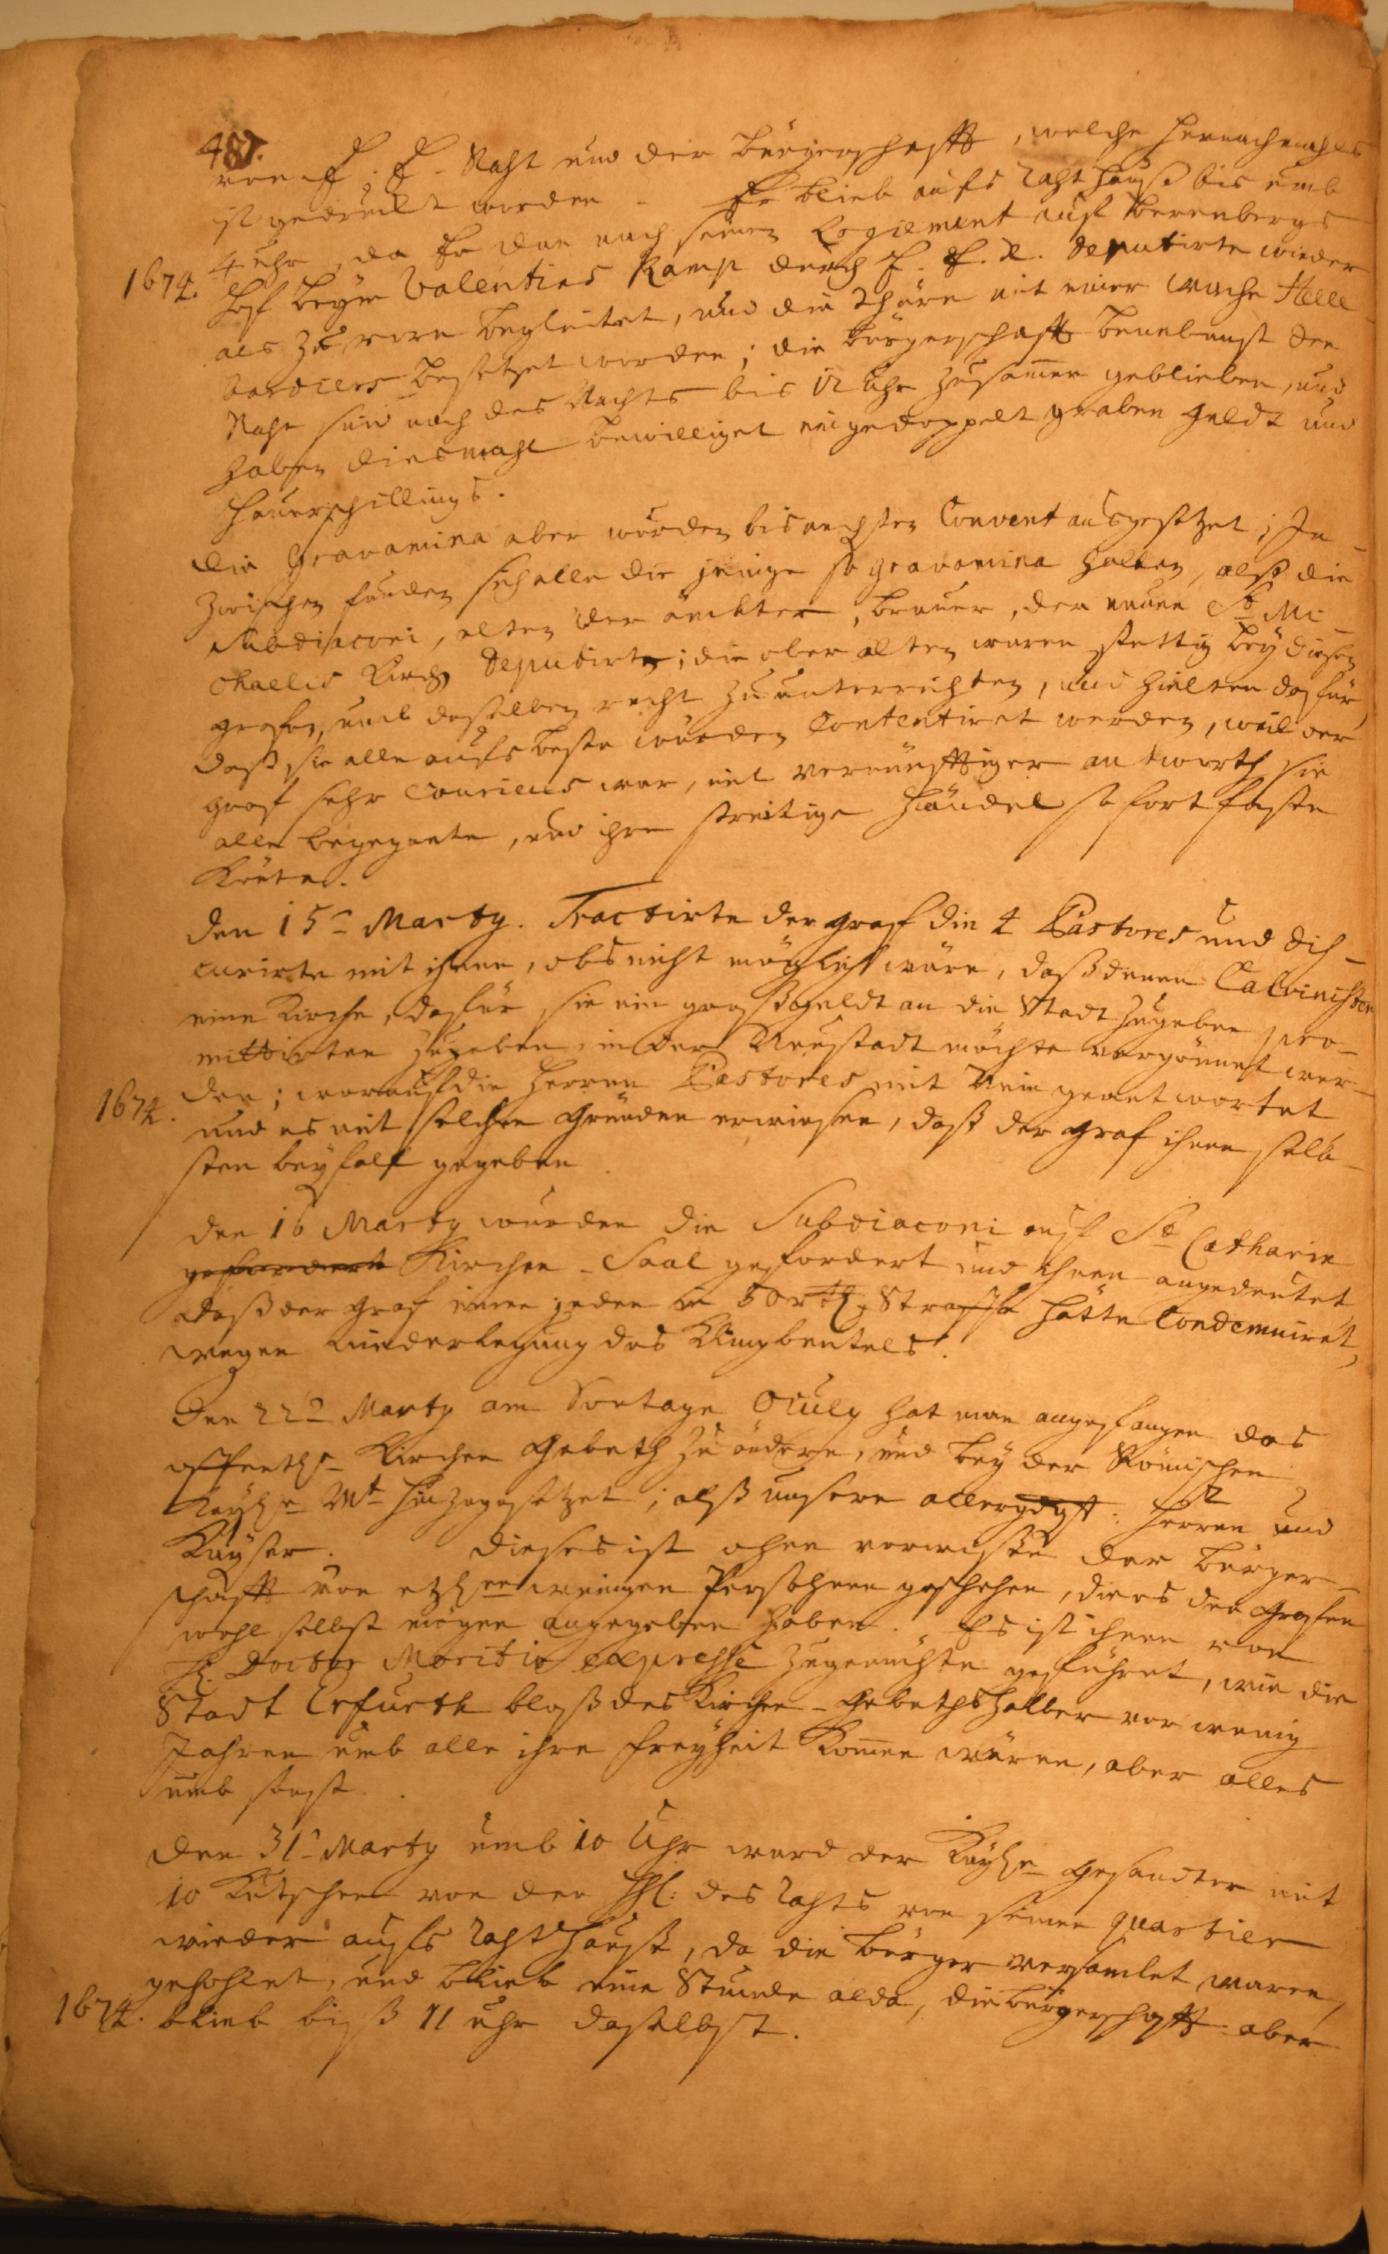 487.
von E. E. Raht und der Bürgerschafft, welche hernachmahls
ist gedruckt worden. Er blieb aufs Rahthauß bis umb
4 Uhr, da Er dan nach seinen Logiement auf Berenbergs
1674.
Hof beym Valentins Kamp durch E. E. R. Deputirte wieder
als zu vorn begleitet, und die Thüre mit einer wache Helle-
bardiers besetzet worden; die Bürgerschafft benebenst den
Raht sind noch des Nachts bis 12 Uhr zusammen geblieben, und
haben diesmahl bewilliget ein gedoppelt graben geldt und
hauerschillings.
die Gravamina aber wurden bis nechsten Convent ausgesetzet; In-
zwischen funden sich alle die jenige so gravamina hatten, alß die
Subdiaconi, alten der ämbter, brauer, der neuen St Mi-
chaelis Kirch Deputirte; die ober alten waren stettig bey diesen
grafen, umb denselben recht zu unterrichten, und hielten dafür,
daß sie alle aufs beste würden Contentiret werden, weil der
graf sehr Courieus war, mit vernünfftiger antworth sie
alle begegnete, und ihre streitige händel sofort fassen
Könte.
den 15t Marty. Tractirte der graf die 4 Pastores und dis-
curirte mit ihnen, obs nicht möglich wäre, daß denen Calvinisten
eine Kirche, dafür sie ein groß geldt an die Stadt zugeben pro-
mittirten zugeben, in der Neustadt möchte vergönnet wer-
den; worauf die Herren Pastores mit Nein geantwortet
1674.
und es mit solchen Gründen erwiesen, daß der graf ihnen selb-
sten beyfall gegeben.
den 16 Marty wurden die Subdiaconi auf St Catharin
gefordert Kirchen-Saal gefordert und ihnen angedeutet
daß der graf einen jeden in 50 rthl. Straffe hätte Condemniret,
wegen niederlegung des Klingbeutels.
den 22t Marty am Sontage Oculy hat man angefangen das
offentl. Kirchen Gebeth zu ändern, und bey der Römischen
Kaysl. Mt hinzugesetzet; alß unsern allergdgst. Herren und
Kayser. Dieses ist ohne vorwissen der Bürger-
schafft von etzl. wenigen Persohnen geschehen, die es den Grafen
wohl selbst mögen angegeben haben. Es ist ihnen von
H. Doctor Moritio expresse zugemühte geführet, wie die
Stadt Erfurth bloß des Kirchen-Gebeths halber vor wenig
Jahren umb alle ihre freyheit kommen wären, aber alles
umb sonst.
den 31t Marty umb 10 Uhr ward der Kaysl. Gesandter mit
10 Kutschen von den HH. des Rahts von seinen quartier
wieder aufs Rahthauß, da die Bürger versamlet waren,
gehohlet, und blieb eine Stunde alda, die Bürgerschafft aber
1674.
blieb biß 11 Uhr daselbst.